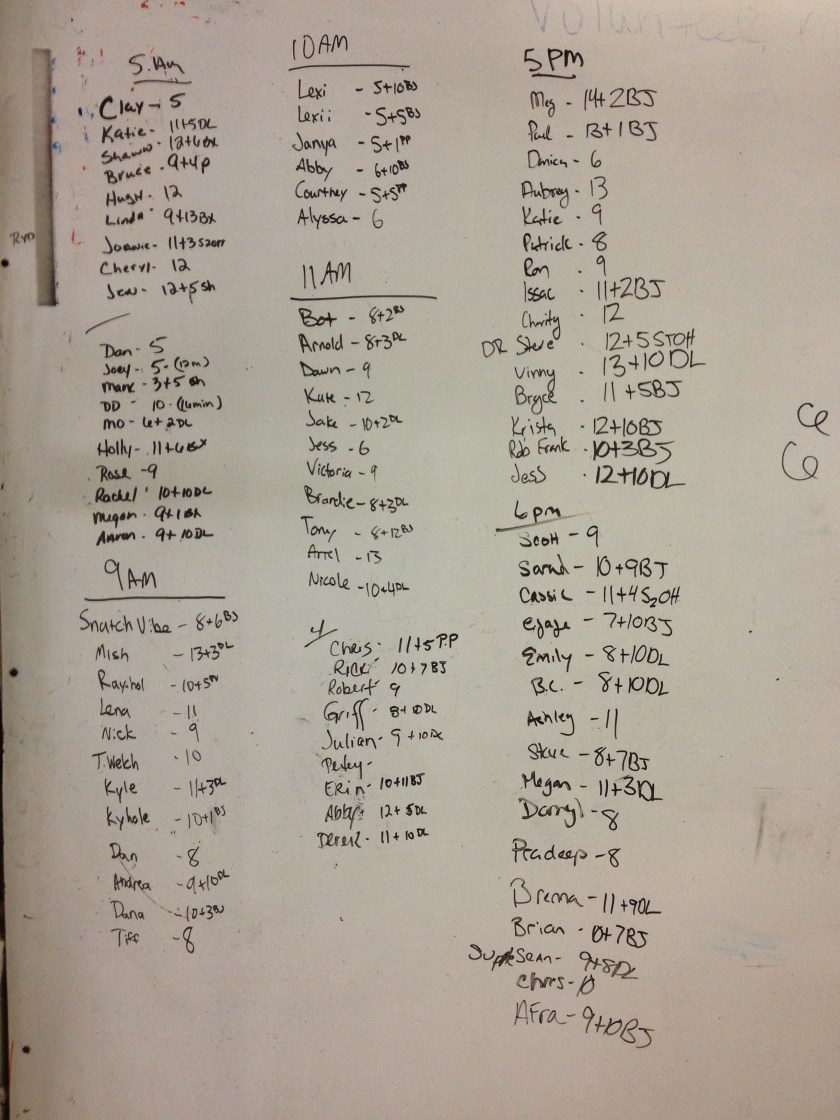 Volunteer
5 Am
Clay - 5
Katie - 11+5DL
Shawn - 12+6BX
Bruce - 9+4P
Hugh - 12
Linda - 9+13BX
Joanie - 11+3S2OH
Cheryl - 12
Jen - 12+5Sh
Dan - 5
Joey - 5 - (12m)
Marc - 3+5Sh
DD - 10 - (16min)
Mo - 6+2DL
Holly - 11+6BX
Rose - 9
Rachel - 10+10DL
Megan - 9+1BX
Aaron - 9+10DL
9AM
Snatch Vibe - 8+6BJ
Mish - 13+3DL
Raychol - 10+5
Lena - 11
Nick - 9
T.Welch - 10
Kyle - 11+3DL
Kyhole - 10+1BJ
Dan - 8
Andrea - 9+10DL
Dana - 10+3BJ
Tiff - 8
10AM
Lexi - 5+10BJ
Lexii - 5+5BJ
Janya - 5+1PP
Abby - 6+10BJ
Courtney - 5+5PP
Alyssa - 6
11AM
Bot - 8+2BJ
Arnold - 8+3DL
Dawn - 9
Kate - 12
Jake - 10+2DL
Jess - 6
Victoria - 9
Brandie - 8+3DL
Tony - 8+12BJ
Ariel - 13
Nicole - 10+4DL
4
Chris - 11+5P.P
Rick - 10+7BJ
Robert 9
Griff - 8+10DL
Julian - 9+10DL
Petey -
Erin - 10+11BJ
Abby - 12+5DL
Derek - 11+10DL
5PM
Meg - 14+2BJ
Paul - 13+1BJ
Danica - 6
Aubrey - 13
Katie - 9
Patrick - 8
Ron - 9
Issac - 11+2BJ
Charity - 12
DR Steve - 12+5STOH
Vinny - 13+10DL
Bryce - 11+5BJ
Krista - 12+10BJ
Rob Frank - 10+3BJ
Jess - 12+10DL
6pm
Scott - 9
Sarah - 10+9BJ
Cassie - 11+4S2OH
7+10BJ
Emily - 8+10DL
B.C. - 8+10DL
Ashley - 11
Steve - 8+7BJ
Megan - 11+3DL
Darryl - 8
Pradeep - 8
Brenna - 11+9DL
Brian - 10+7BJ
Sean - 9+8DL
Chris - 10
Afra - 9+10BJ